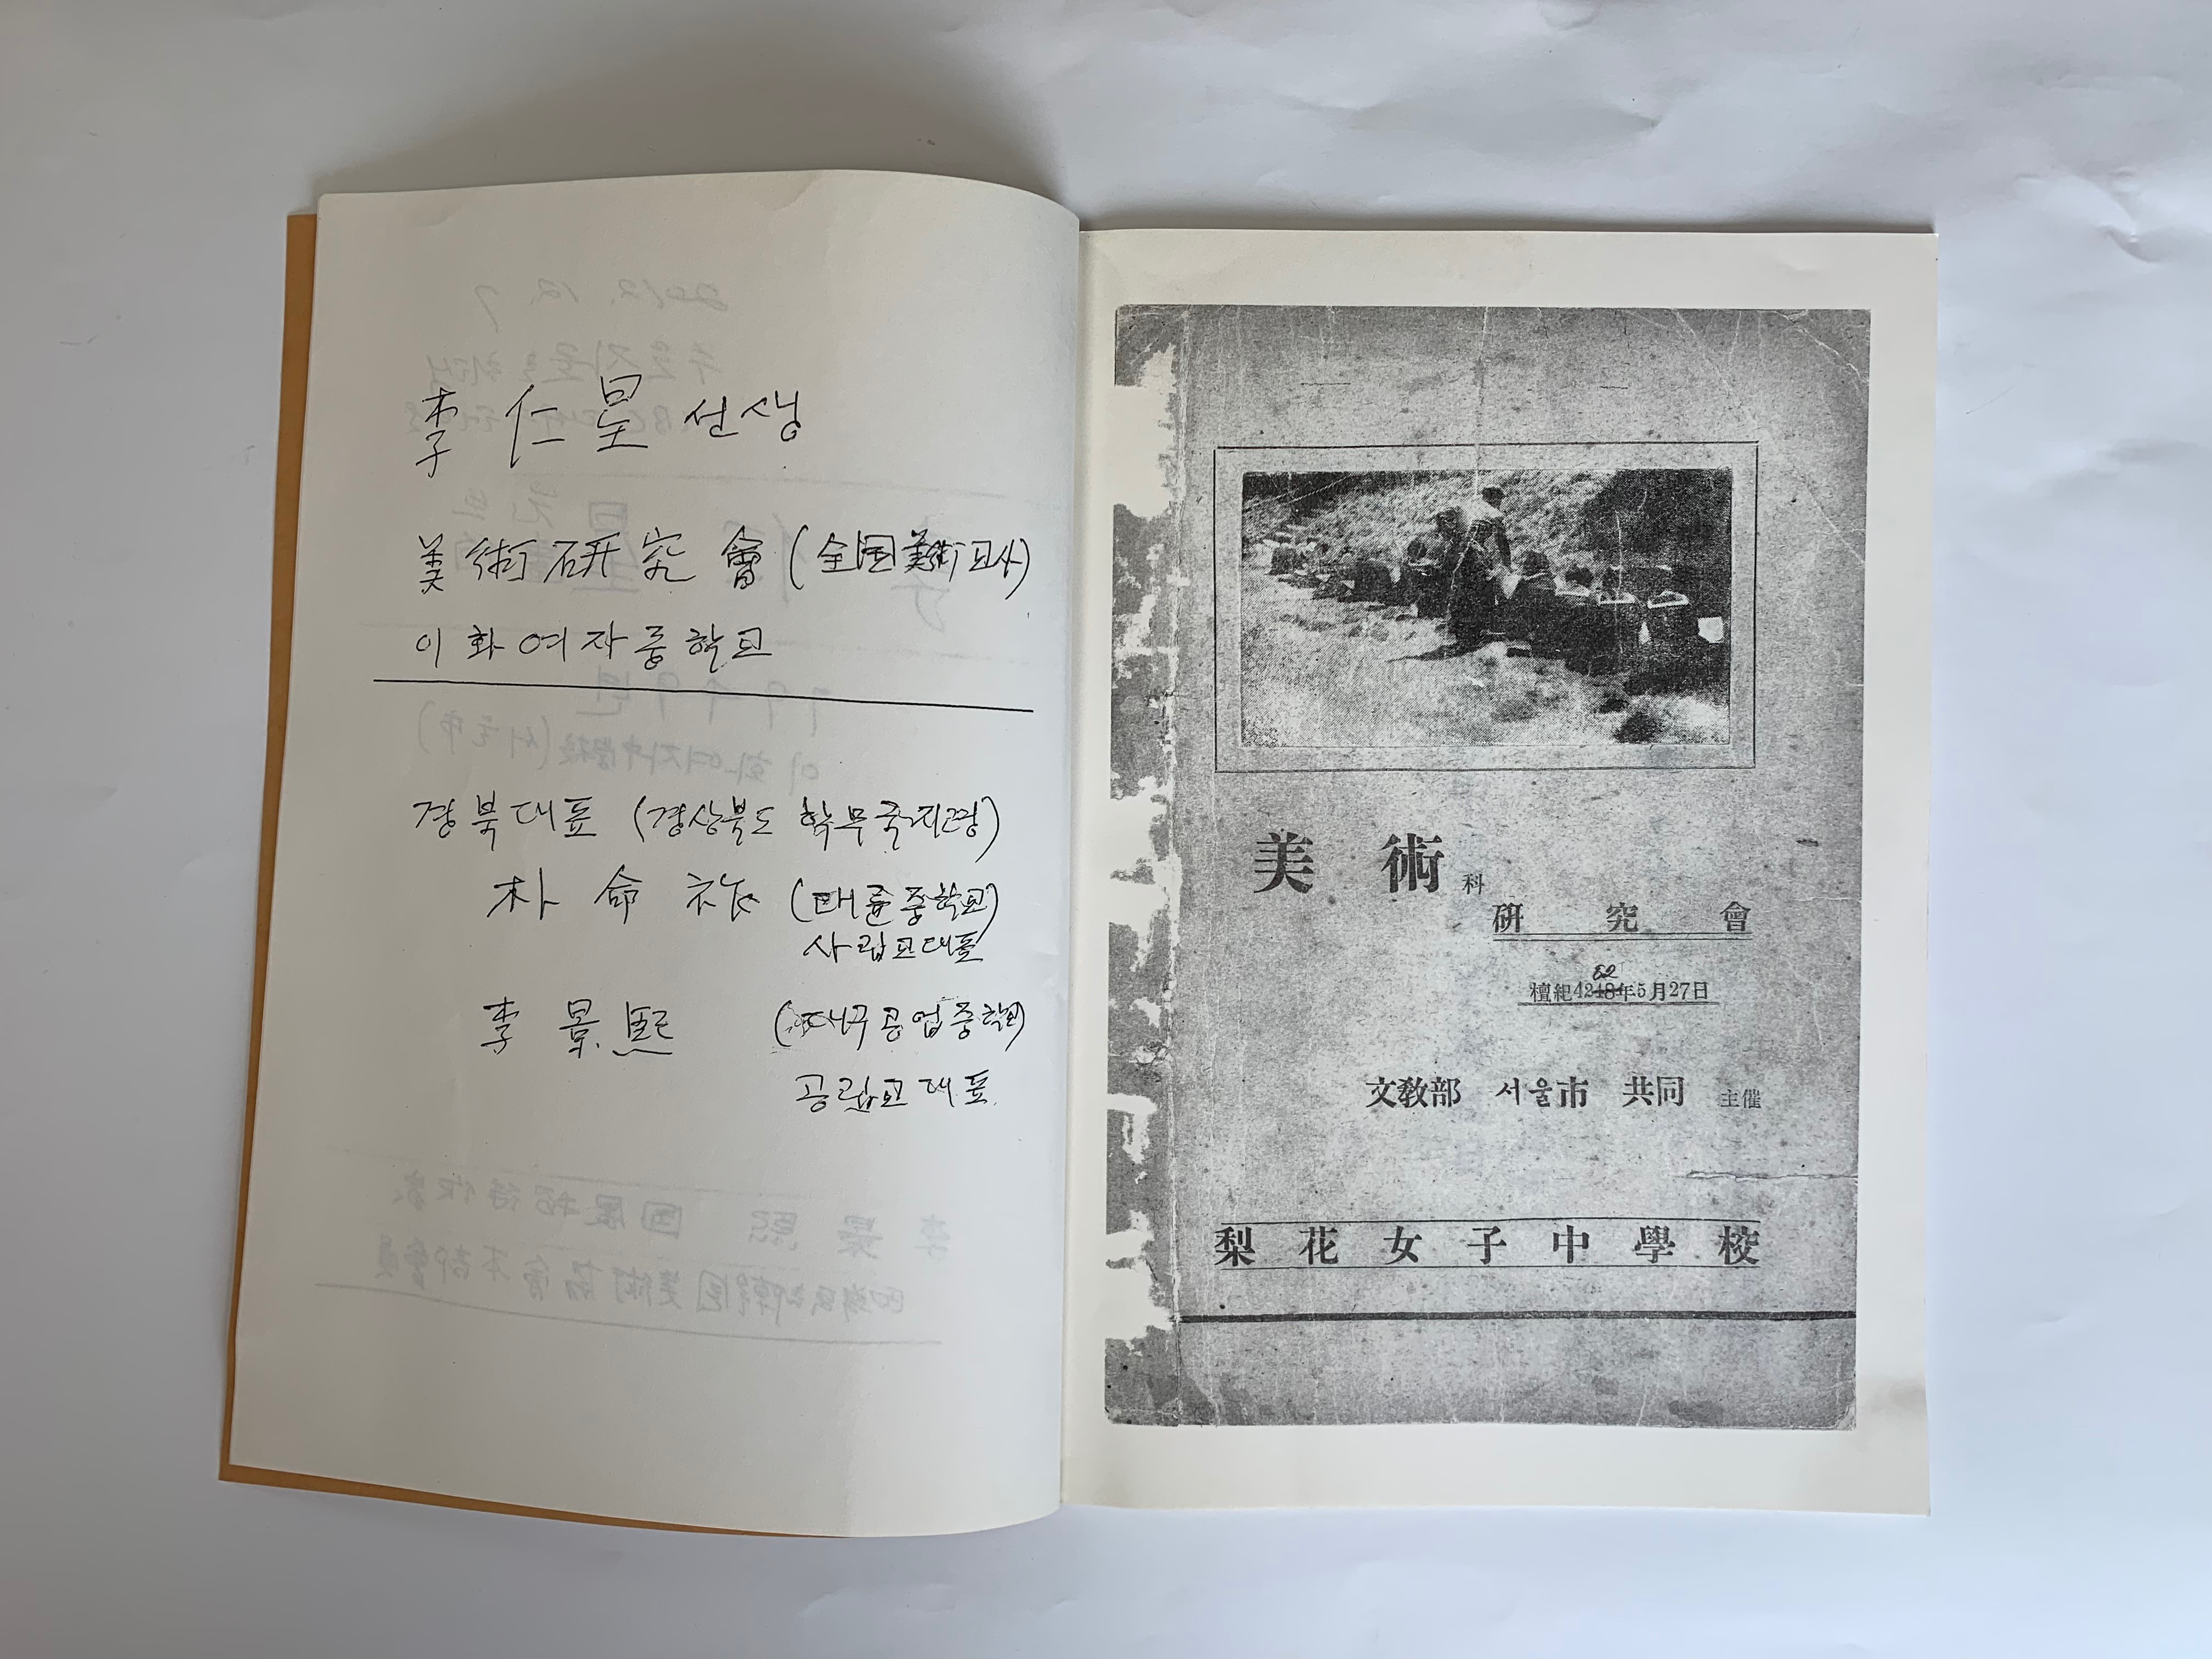 李仁星 선생
美術研究會 (全国美術교사)
이화여자중학교
경북대표 (경상북도 학무국지명)
朴命祚 (대륜중학교)
사립교대표
李景熙 (대구공업중학교)
공립교대표
美術科
硏究會
82
檀紀4248年5月27日
文敎部 서울市 共同 主催
梨花女子中學校